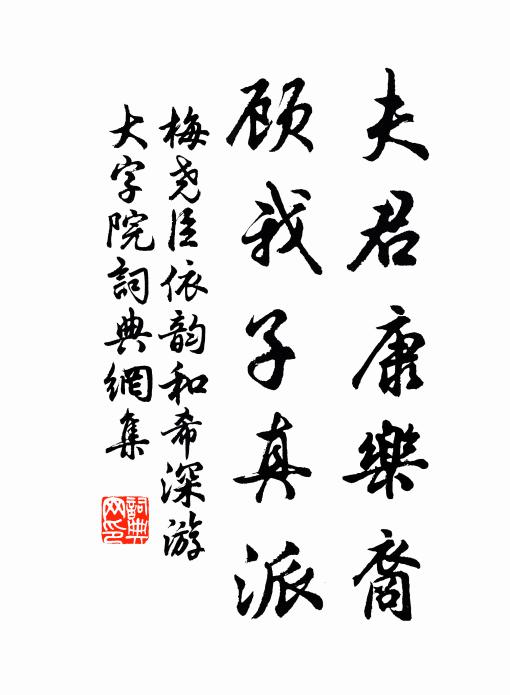 夫君康樂裔
顾我子真派
梅尧臣依韵和希深游
大字院詞典網集
詞典
网印